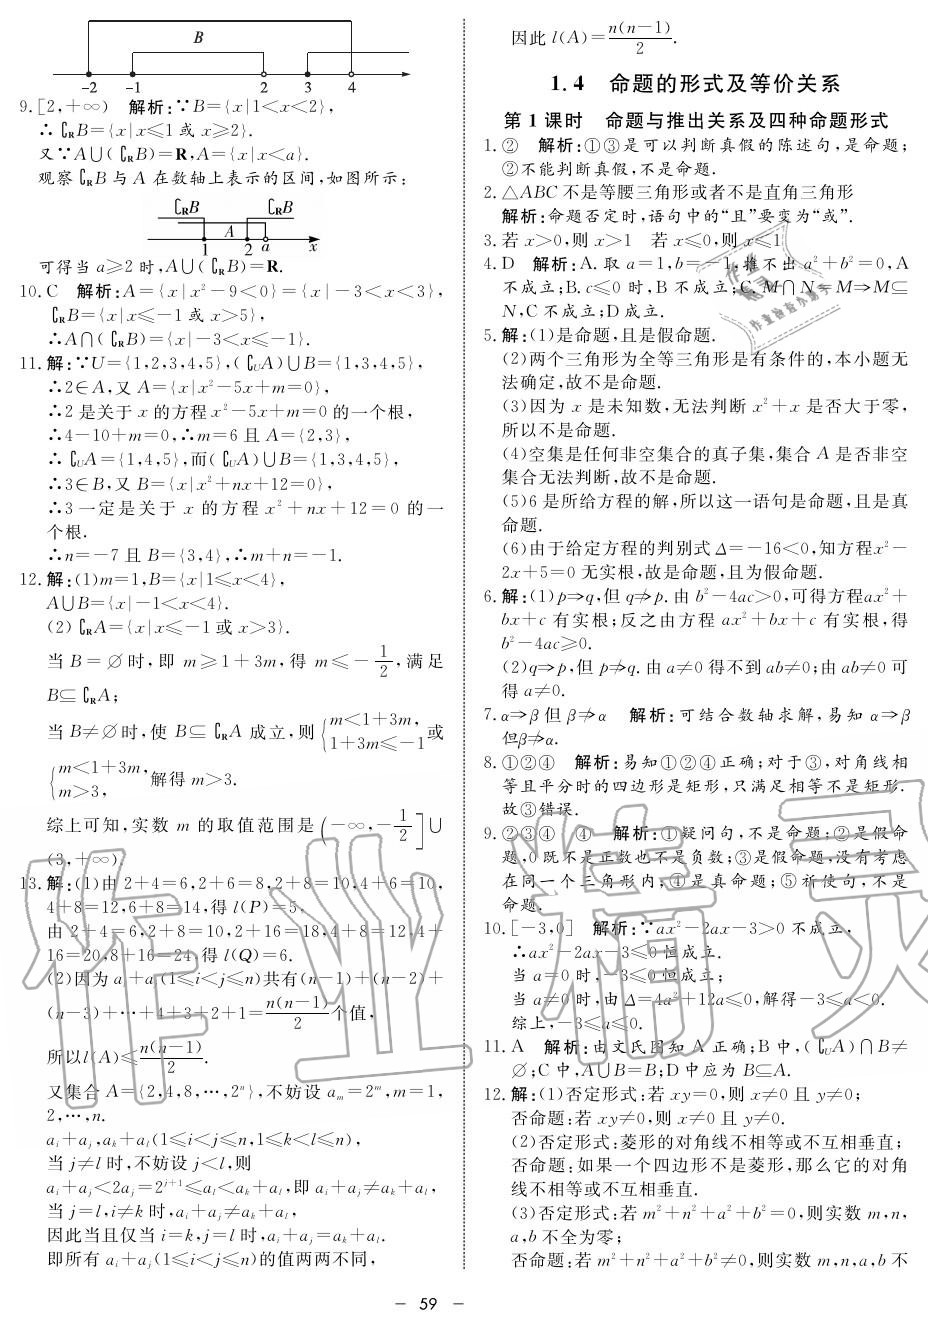 B
-2 -1 2 3 4
9.[2,+∞) 解析:∵B={x|1<x<2},
∴∁RB={x|x≤1或x≥2}.
又∵A∪(∁RB)=R,A={x|x<a}.
观察∁RB与A在数轴上表示的区间,如图所示:
∁RB ∁RB
A
1 2 a x
可得当a≥2时,A∪(∁RB)=R.
10.C 解析:A={x|x²-9<0}={x|-3<x<3},
∁RB={x|x≤-1或x>5},
∴A∩(∁RB)={x|-3<x≤-1}.
11.解:∵U={1,2,3,4,5},(∁UA)∪B={1,3,4,5},
∴2∈A,又A={x|x²-5x+m=0},
∴2是关于x的方程x²-5x+m=0的一个根,
∴4-10+m=0,∴m=6且A={2,3},
∴∁UA={1,4,5},而(∁UA)∪B={1,3,4,5},
∴3∈B,又B={x|x²+nx+12=0},
∴3一定是关于x的方程x²+nx+12=0的一
个根.
∴n=-7且B={3,4},∴m+n=-1.
12.解:(1)m=1,B={x|1≤x<4},
A∪B={x|-1<x<4}.
(2)∁RA={x|x≤-1或x>3}.
当B=∅时,即m≥1+3m,得m≤-1/2,满足
B⊆∁RA;
当B≠∅时,使B⊆∁RA成立,则{m<1+3m, 1+3m≤-1或
{m<1+3m, m>3, 解得m>3.
综上可知,实数m的取值范围是(-∞,-1/2]∪
(3,+∞).
13.解:(1)由2+4=6,2+6=8,2+8=10,4+6=10,
4+8=12,6+8=14,得l(P)=5,
由2+4=6,2+8=10,2+16=18,4+8=12,4+
16=20,8+16=24,得l(Q)=6.
(2)因为ai+aj(1≤i<j≤n)共有(n-1)+(n-2)+
(n-3)+…+4+3+2+1=n(n-1)/2个值,
所以l(A)≤n(n-1)/2.
又集合A={2,4,8,…,2ⁿ},不妨设am=2ᵐ,m=1,
2,…,n.
ai+aj,ak+al(1≤i<j≤n,1≤k<l≤n),
当j≠l时,不妨设j<l,则
ai+aj<2aj=2ʲ⁺¹≤al<ak+al,即ai+aj≠ak+al,
当j=l,i≠k时,ai+aj≠ak+al,
因此当且仅当i=k,j=l时,ai+aj=ak+al.
即所有ai+aj(1≤i<j≤n)的值两两不同,
因此l(A)=n(n-1)/2.
1.4 命题的形式及等价关系
第1课时 命题与推出关系及四种命题形式
1.② 解析:①③是可以判断真假的陈述句,是命题;
②不能判断真假,不是命题.
2.△ABC不是等腰三角形或者不是直角三角形
解析:命题否定时,语句中的“且”要变为“或”.
3.若x>0,则x>1 若x≤0,则x≤1
4.D 解析:A.取a=1,b=-1,推不出a²+b²=0,A
不成立;B.c≤0时,B不成立;C.M∩N=M⇒M⊆
N,C不成立;D成立.
5.解:(1)是命题,且是假命题.
(2)两个三角形为全等三角形是有条件的,本小题无
法确定,故不是命题.
(3)因为x是未知数,无法判断x²+x是否大于零,
所以不是命题.
(4)空集是任何非空集合的真子集,集合A是否非空
集合无法判断,故不是命题.
(5)6是所给方程的解,所以这一语句是命题,且是真
命题.
(6)由于给定方程的判别式Δ=-16<0,知方程x²-
2x+5=0无实根,故是命题,且为假命题.
6.解:(1)p⇒q,但q⇏p.由b²-4ac>0,可得方程ax²+
bx+c有实根;反之由方程ax²+bx+c有实根,得
b²-4ac≥0.
(2)q⇒p,但p⇏q.由a≠0得不到ab≠0;由ab≠0可
得a≠0.
7.α⇒β但β⇏α 解析:可结合数轴求解,易知α⇒β
但β⇏α.
8.①②④ 解析:易知①②④正确;对于③,对角线相
等且平分时的四边形是矩形,只满足相等不是矩形.
故③错误.
9.②③④ ④ 解析:①疑问句,不是命题;②是假命
题,0既不是正数也不是负数;③是假命题,没有考虑
在同一个三角形内;④是真命题;⑤祈使句,不是
命题.
10.[-3,0] 解析:∵ax²-2ax-3>0不成立,
∴ax²-2ax-3≤0恒成立.
当a=0时,-3≤0恒成立;
当a≠0时,由Δ=4a²+12a≤0,解得-3≤a<0.
综上,-3≤a≤0.
11.A 解析:由文氏图知A正确;B中,(∁UA)∩B≠
∅;C中,A∪B=B;D中应为B⊆A.
12.解:(1)否定形式:若xy=0,则x≠0且y≠0;
否命题:若xy≠0,则x≠0且y≠0.
(2)否定形式:菱形的对角线不相等或不互相垂直;
否命题:如果一个四边形不是菱形,那么它的对角
线不相等或不互相垂直.
(3)否定形式:若m²+n²+a²+b²=0,则实数m,n,
a,b不全为零;
否命题:若m²+n²+a²+b²≠0,则实数m,n,a,b不
- 59 -
作业精灵